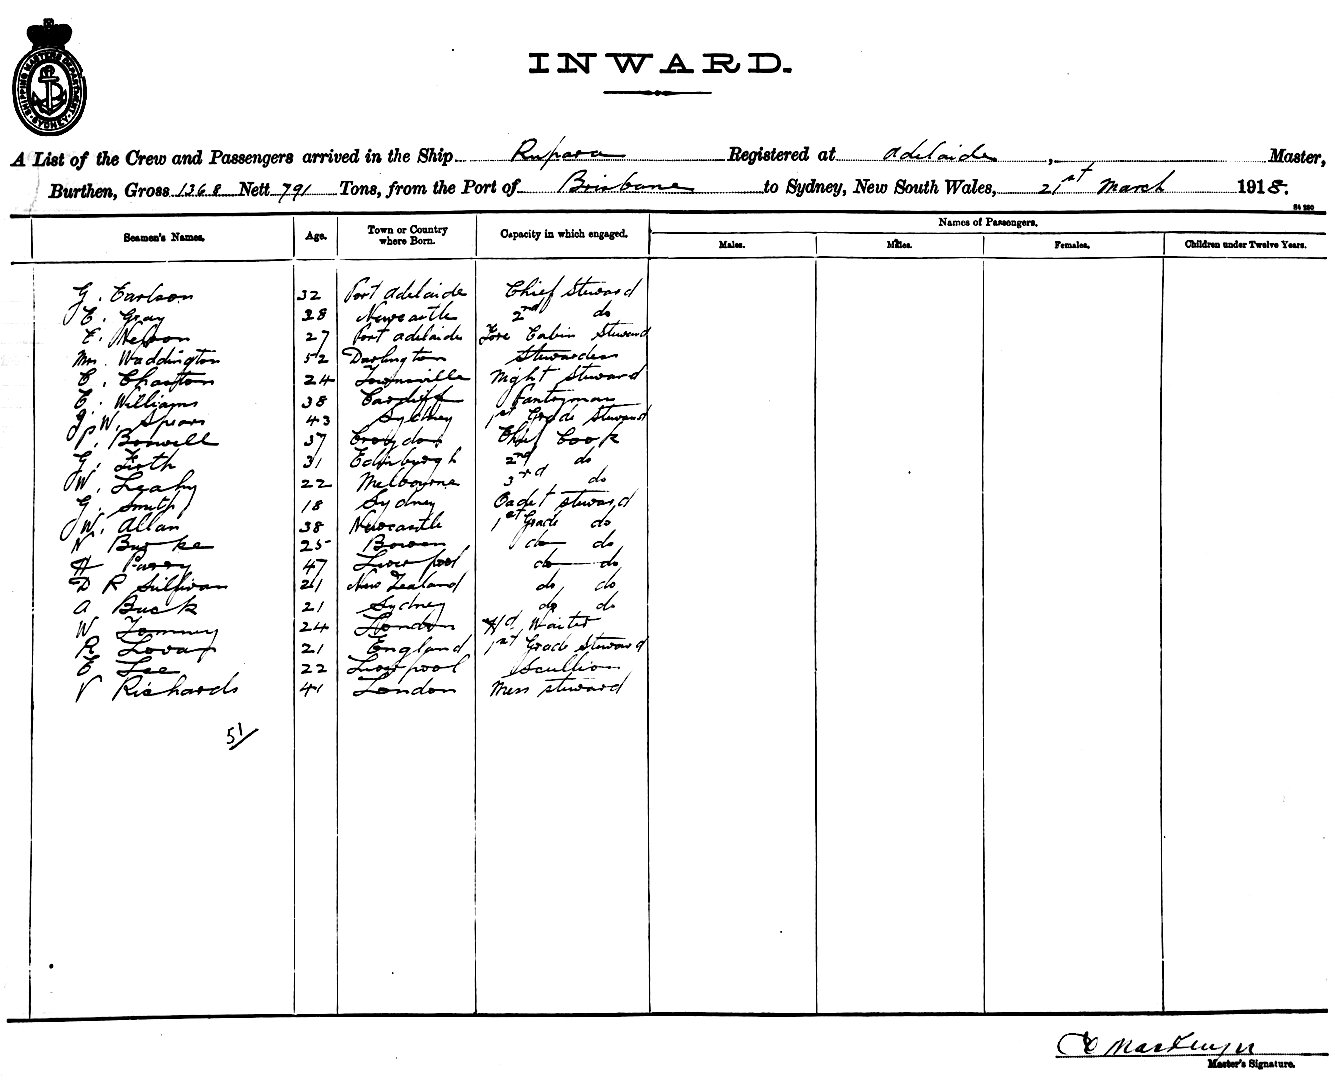 SHIPPING MASTERS DEPARTMENT SYDNEY
INWARD.
A List of the Crew and Passengers arrived in the Ship Rupara Registered at Adelaide, Master,
Burthen, Gross 1368 Nett 791 Tons, from the Port of Brisbane to Sydney, New South Wales, 21st March 1918.
Names of Passengers.
Seamen's Names. Age. Town or Country where Born. Capacity in which engaged. Males. Males. Females. Children under Twelve Years.
G. Carlson 32 Port Adelaide Chief Steward
E. Gray 28 Newcastle 2nd do
E. Nelson 27 Port Adelaide Fore Cabin Steward
Mrs. Waddington 52 Darlington Stewardess
C. Charlton 24 Townsville Night Steward
E. Williams 38 Cardiff Pantryman
J. W. Spears 43 Sydney 1st Grade Steward
P. Boswell 37 Croydon Chief Cook
G. Firth 31 Edinburgh 2nd do
W. Leahy 22 Melbourne 3rd do
G. Smith 18 Sydney Cadet Steward
W. Allan 38 Newcastle 1st Grade do
N Burke 25 Bowen do do
H Parry 47 Liverpool do do
D R Sullivan 21 New Zealand do do
A Buck 21 Sydney do do
W 24 London Hd Waiter
R 21 England 1st Grade Steward
E Lee 22 Liverpool Scullion
V Richards 41 London Mess Steward
51/
Master's Signature.